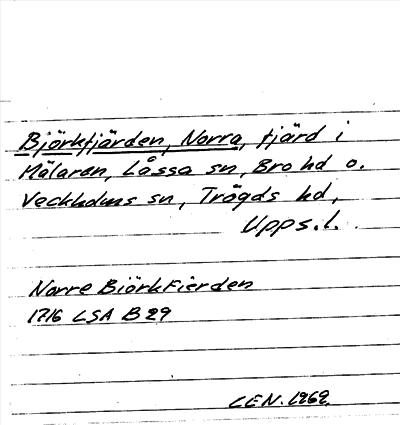 Björkfjärden, Norra, fjärd i
Mälaren, Låssa sn, Bro hd o.
Veckholms sn, Trögds hd,
Upps.l.
Norre BiörkFierden
1716 LSA B 29
CEN. 1969